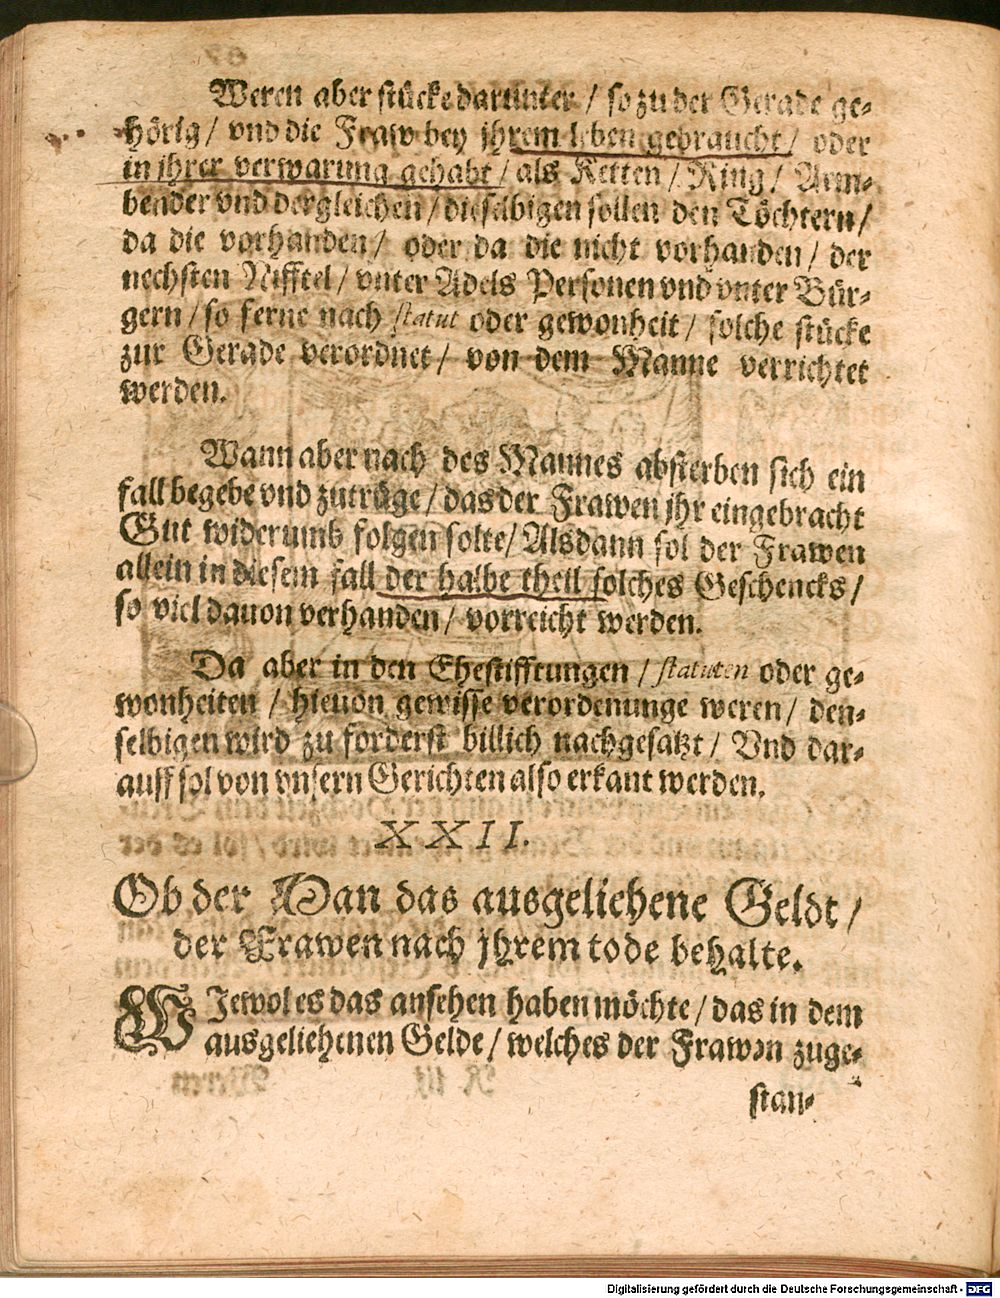 Weren aber stücke darunter / so zu der Gerade ge-
hörig / vnd die Fraw bey jhrem leben gebraucht / oder
in jhrer verwarung gehabt / als Ketten / Ring / Arm-
bender vnd dergleichen / dieselbigen sollen den Töchtern /
da die vorhanden / oder da die nicht vorhanden / der
nechsten Nifftel / vnter Adels Personen vnd vnter Bür-
gern / so ferne nach statut oder gewonheit / solche stücke
zur Gerade verordnet / von dem Manne verrichtet
werden.
Wann aber nach des Mannes absterben sich ein
fall begebe vnd zutrüge / das der Frawen jhr eingebracht
Gut widerumb folgen solte / Alsdann sol der Frawen
allein in diesem fall der halbe theil solches Geschencks /
so viel dauon verhanden / vorreicht werden.
Da aber in den Ehestifftungen / statuten oder ge-
wonheiten / hieuon gewisse verordenunge weren / den-
selbigen wird zu forderst billich nachgesatzt / Vnd dar-
auff sol von vnsern Gerichten also erkant werden.
XXII.
Ob der Man das ausgeliehene Geldt /
der Frawen nach jhrem tode behalte.
WJewol es das ansehen haben möchte / das in dem
ausgeliehenen Gelde / welches der Frawen zuge-
stan-
Digitalisierung gefördert durch die Deutsche Forschungsgemeinschaft - DFG